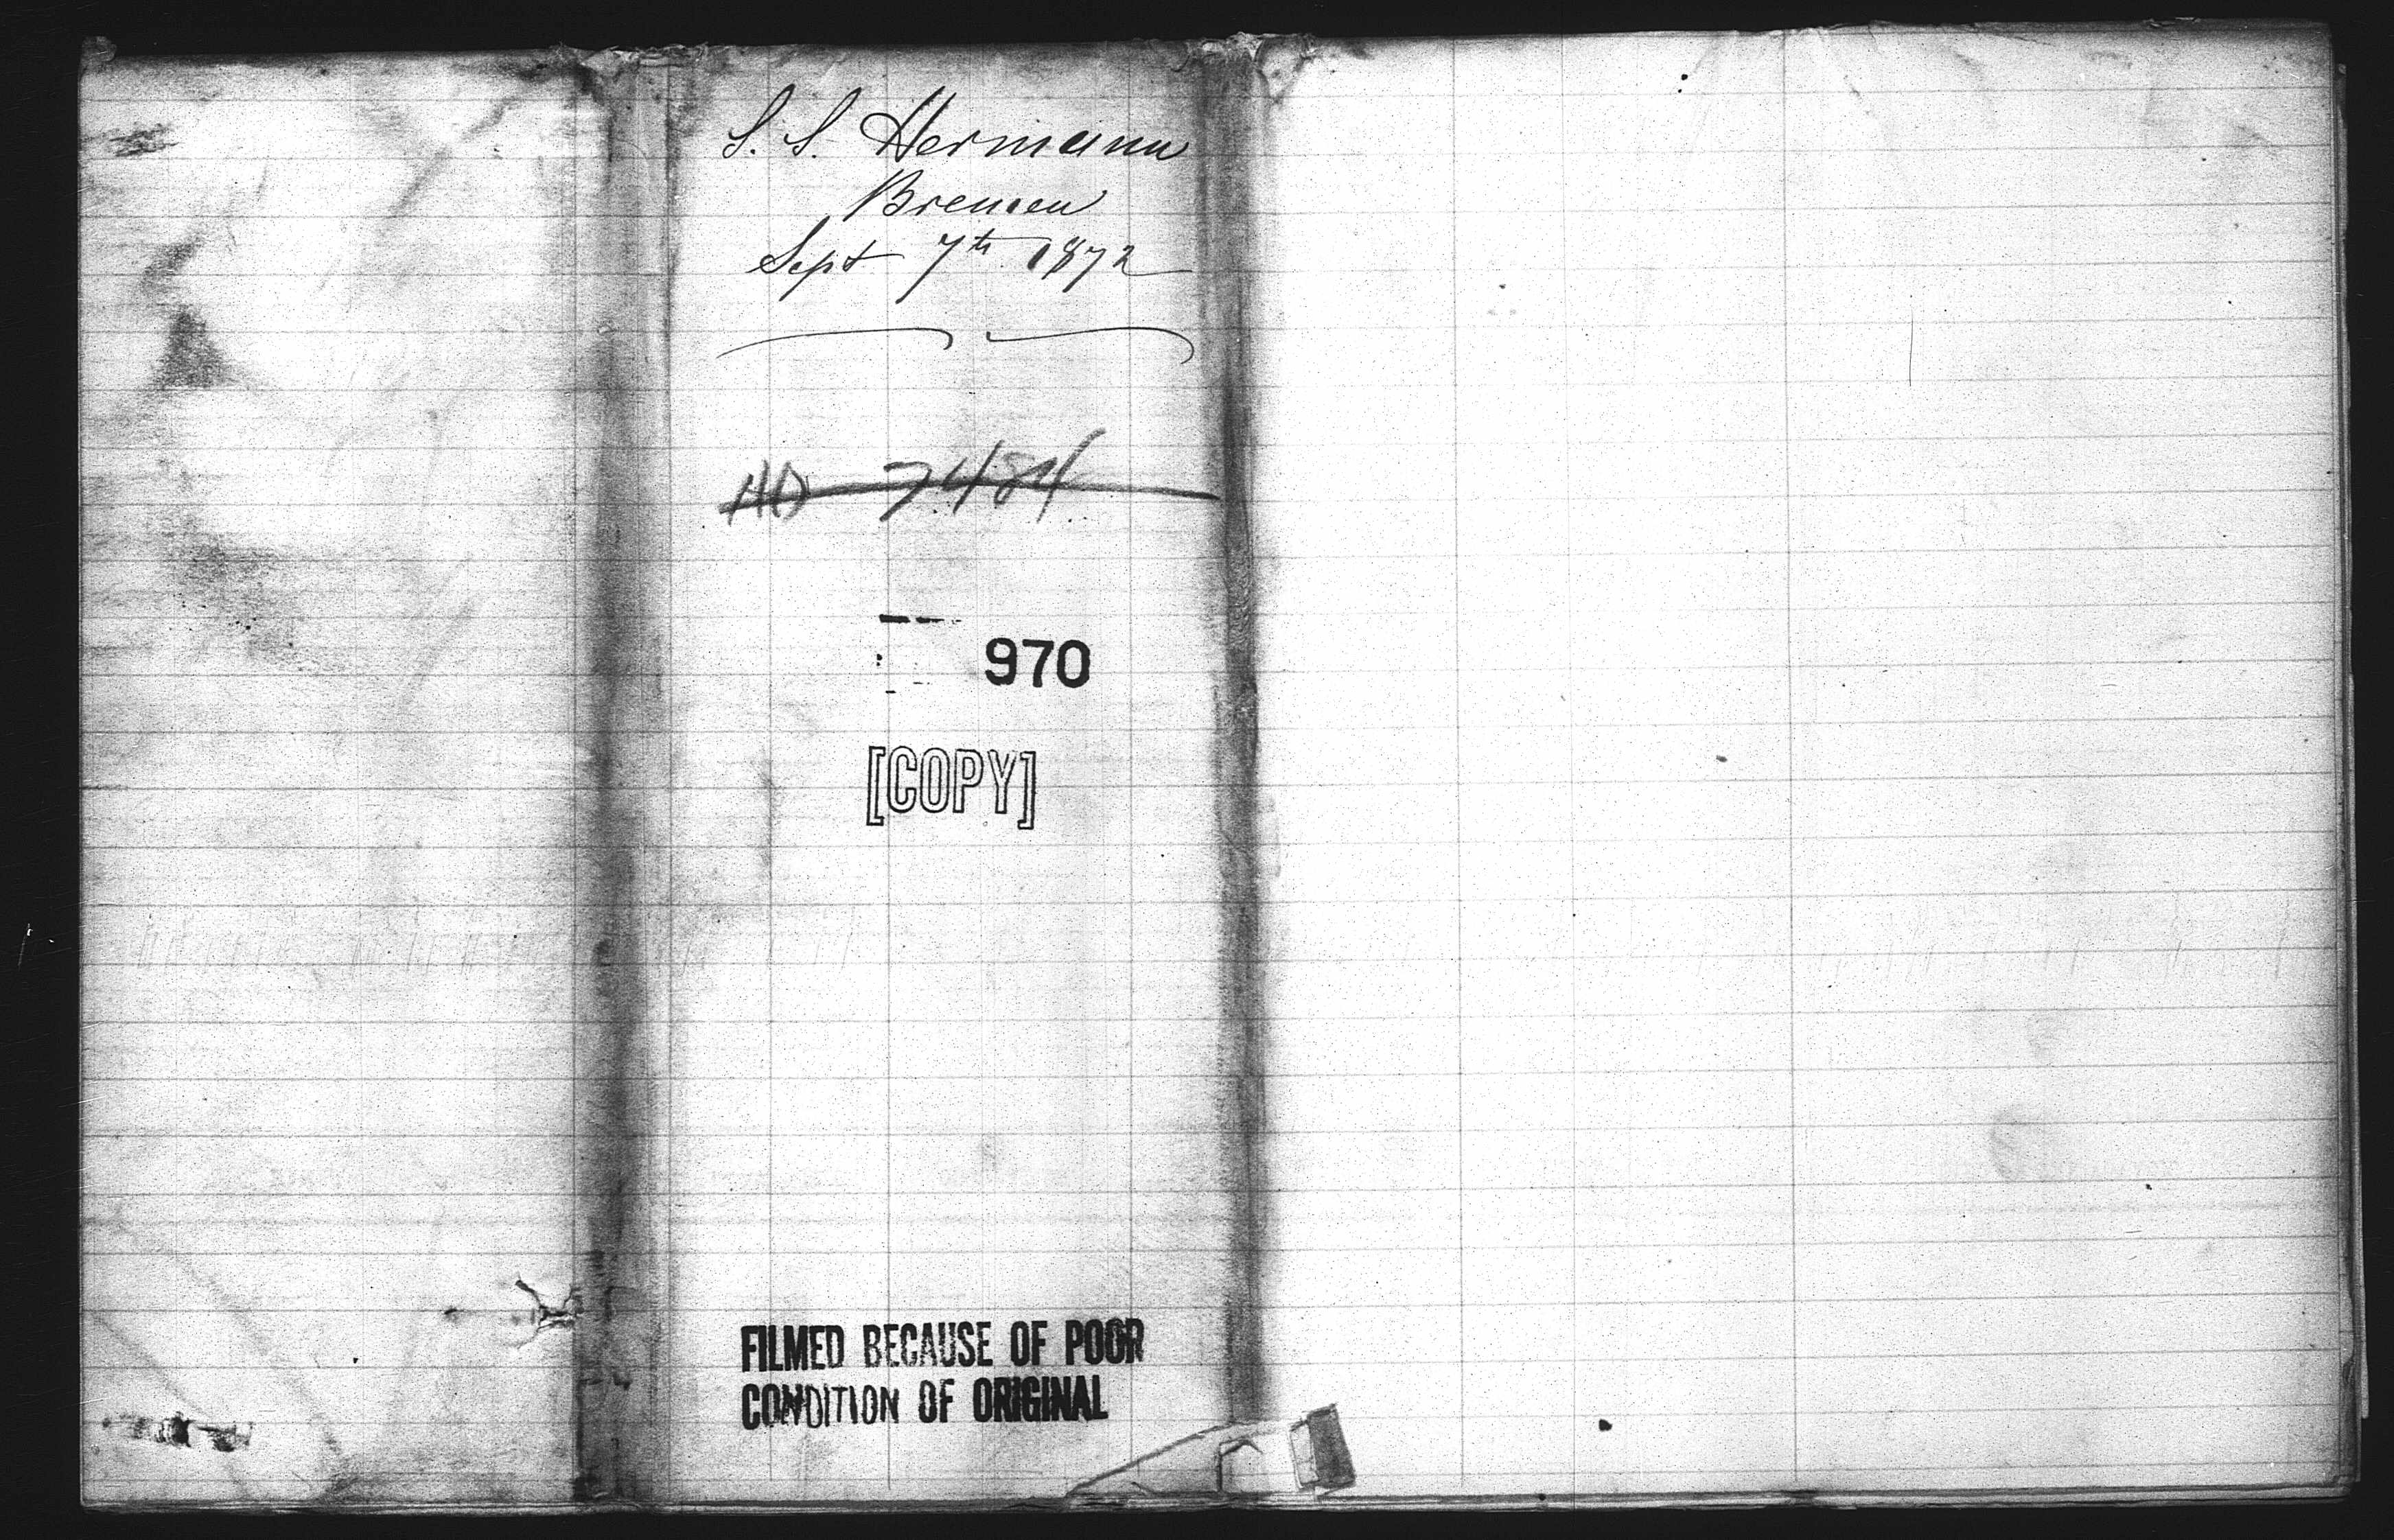 S. S. Hermann
Bremen
Sept 7th 1872
7484
970
[COPY]
FILMED BECAUSE OF POOR
CONDITION OF ORIGINAL